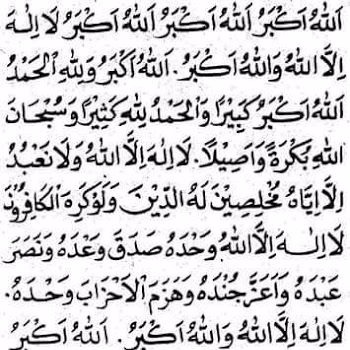 اَللهُ اَكْبَرُ اَللهُ اَكْبَرُ اَللهُ اَكْبَرُ لَا اِلٰهَ
اِلَّا اللهُ وَاللهُ اَكْبَرُ. اَللهُ اَكْبَرُ وَلِلّٰهِ الْحَمْدُ
اَللهُ اَكْبَرُ كَبِيْرًا وَالْحَمْدُ لِلّٰهِ كَثِيْرًا وَسُبْحَانَ
اللهِ بُكْرَةً وَاَصِيْلًا. لَا اِلٰهَ اِلَّا اللهُ وَلَا نَعْبُدُ
اِلَّا اِيَّاهُ مُخْلِصِيْنَ لَهُ الدِّيْنَ وَلَوْ كَرِهَ الْكَافِرُوْنَ
لَا اِلٰهَ اِلَّا اللهُ وَحْدَهُ صَدَقَ وَعْدَهُ وَنَصَرَ
عَبْدَهُ وَاَعَزَّ جُنْدَهُ وَهَزَمَ الْاَحْزَابَ وَحْدَهُ.
لَا اِلٰهَ اِلَّا اللهُ وَاللهُ اَكْبَرُ. اَللهُ اَكْبَرُ